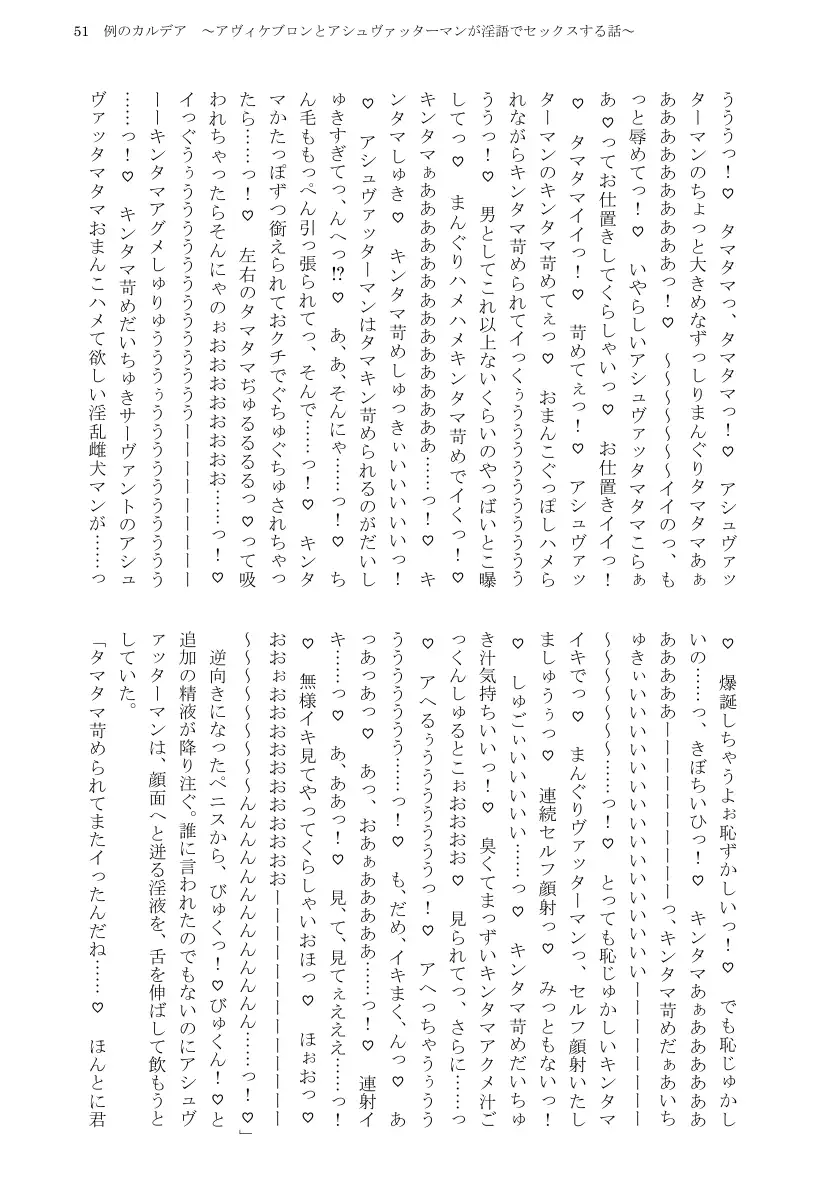 51　例のカルデア　～アヴィケブロンとアシュヴァッターマンが淫語でセックスする話～
うううっ！♡　タマタマっ、タマタマっ！♡　アシュヴァッ
ターマンのちょっと大きめなずっしりまんぐりタマタマあぁ
ああああああああああっ！♡　～～～～～～イイのっ、も
っと辱めてっ！♡　いやらしいアシュヴァッタマタマこらぁ
あ♡ってお仕置きしてくらしゃいっ♡　お仕置きイイっ！
♡　タマタマイイっ！♡　苛めてぇっ！♡　アシュヴァッ
ターマンのキンタマ苛めてぇっ♡　おまんこぐっぽしハメら
れながらキンタマ苛められてイっくぅううううううううう
ううっ！♡　男としてこれ以上ないくらいのやっばいとこ曝
してっ♡　まんぐりハメハメキンタマ苛めでイくっ！♡
キンタマぁああああああああああああああああ……っ！♡　キ
ンタマしゅき♡　キンタマ苛めしゅっきぃいいいいいっ！
♡　アシュヴァッターマンはタマキン苛められるのがだいし
ゅきすぎてっ、んへっ⁉♡　あ、あ、そんにゃ……っ！♡　ち
ん毛ももっぺん引っ張られてっ、そんで……っ！♡　キンタ
マかたっぽずつ銜えられておクチでぐちゅぐちゅされちゃっ
たら……っ！♡　左右のタマタマぢゅるるるるっ♡って吸
われちゃったらそんにゃのぉおおおおおおおおお……っ！♡
イっぐぅぅううううううううううううう――――――――
――キンタマアグメしゅりゅうううぅううううううううう
……っ！♡　キンタマ苛めだいちゅきサーヴァントのアシュ
ヴァッタマタマおまんこハメて欲しい淫乱雌犬マンが……っ
♡　爆誕しちゃうよぉ恥ずかしいっ！♡　でも恥じゅかし
いの……っ、きぼちいひっ！♡　キンタマあぁああああああ
あああああ――――――――――っ、キンタマ苛めだぁあいち
ゅきぃいいいいいいいいいいいいいいいいい――――――――
～～～～～～～……っ！♡　とっても恥じゅかしいキンタマ
イキでっ♡　まんぐりヴァッターマンっ、セルフ顔射いたし
ましゅうぅっ♡　連続セルフ顔射っ♡　みっともないっ！
♡　しゅごぃいいいいい……っ♡　キンタマ苛めだいちゅ
き汁気持ちいいっ！♡　臭くてまっずいキンタマアクメ汁ご
っくんしゅるとこぉおおおお♡　見られてっ、さらに……っ
♡　アへるぅうううううううっ！♡　アへっちゃうぅうう
うううううううう……っ！♡　も、だめ、イキまく、んっ♡　あ
っあっあっ♡　あっ、おあぁああああああ……っ！♡　連射イ
キ……っ♡　あ、ああっ！♡　見、て、見てぇえええ……っ！
♡　無様イキ見てやってくらしゃいおほっ♡　ほぉおっ♡
おおぉおおおおおおおおおおおおおお――――――――――
～～～～～～～～～んんんんんんんんんんんん……っ！♡」
　逆向きになったペニスから、びゅくっ！♡びゅくん！♡と
追加の精液が降り注ぐ。誰に言われたのでもないのにアシュヴ
ァッターマンは、顔面へと迸る淫液を、舌を伸ばして飲もうと
していた。
「タマタマ苛められてまたイったんだね……♡　ほんとに君